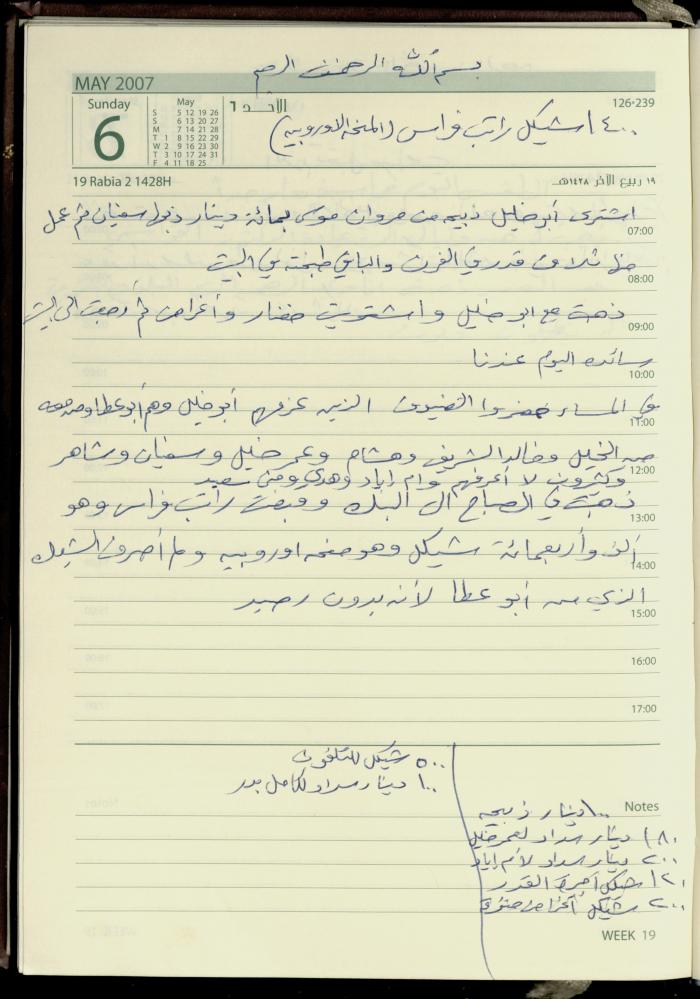 بسم الله الرحمن الرحيم
MAY 2007
Sunday
6
May
S 5 12 19 26
S 6 13 20 27
M 7 14 21 28
T 1 8 15 22 29
W 2 9 16 23 30
T 3 10 17 24 31
F 4 11 18 25
الأحد ٦
126-239
١٤٠٠ شيكل راتب فراس (المنحة الاوروبيه)
19 Rabia 2 1428H
١٩ ربيع الآخر ١٤٢٨هـ
اشترى أبو خليل ذبيحه من مروان موسى بمائة دينار ذبحها سفيان ثم عمل
07:00
ثلاث قدر في الفرن والباقي طبخته في البيت
08:00
ذهبت مع ابو خليل واشتريت خضار وأغراض ثم رجعت الى البيت
09:00
رسائده اليوم عندنا
10:00
في المساء حضروا الضيوف الذين عزمهم أبو خليل وهم أبو عطا ومن معه
11:00
من الخليل وخالد الشريف وهشام وعمر خليل وسفيان وشاهر
12:00
وكثيرون لا أعرفهم وام اياد وهدى ومنى سعيد
ذهبت في الصباح الى البنك وقبضت راتب فراس وهو
13:00
ألف وأربعمائة شيكل وهو منحه اوروبيه ولم أصرف الشيك
14:00
الذي من أبو عطا لأنه بدون رصيد
15:00
16:00
17:00
٥٠٠ شيكل للتلفون
١٠٠ دينار سداد لكامل بدر
Notes
١٠٠ دينار ذبيحه
١٨٠ دينار سداد لعمر خليل
٢٠٠ دينار سداد لأم اياد
١٢٠ شيكل أجرة القدر
٢٠٠ شيكل أغراض
WEEK 19